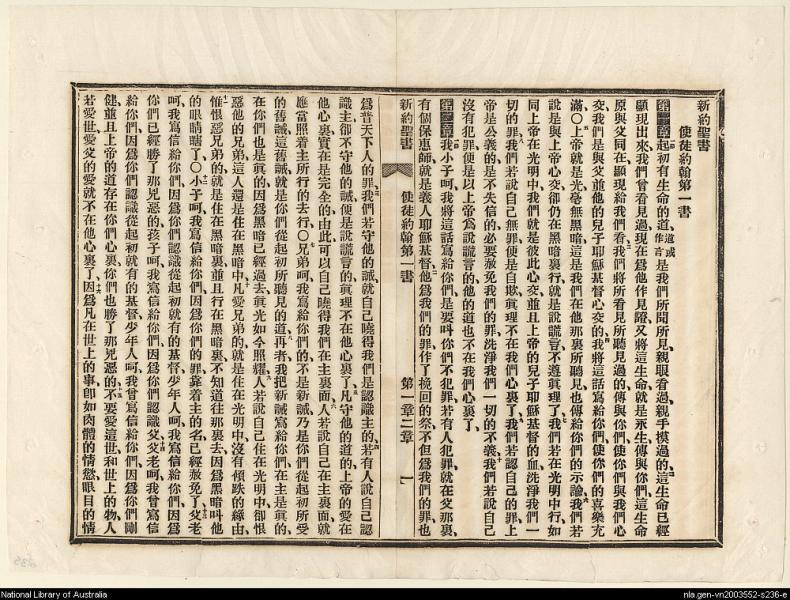 新約聖書
使徒約翰第一書
第一章起初有生命的道道或作言是我們所聞所見親眼看過親手摸過的這生命已經
顯現出來我們曾看見過現在爲他作見證又將這生命就是永生傳與你們這生命
原與父同在顯現給我們看我們將所看見所聽見過的傳與你們使你們與我們心
交我們是與父並他的兒子耶穌基督心交的我將這話寫給你們使你們的喜樂充
滿〇上帝就是光毫無黑暗這是我們在他那裏所聽見也傳給你們的示諭我們若
說是與上帝心交卻仍在黑暗裏行就是說謊言不遵眞理了我們若在光明中行如
同上帝在光明中我們就是彼此心交並且上帝的兒子耶穌基督的血洗淨我們一
切的罪我們若說自己無罪便是自欺眞理不在我們心裏了我們若認自己的罪上
帝是公義的是不失信的必要赦免我們的罪洗淨我們一切的不義我們若說自己
沒有犯罪便是以上帝爲說謊言的他的道也不在我們心裏了
第二章我小子呵我將這話寫給你們是要叫你們不犯罪若有人犯罪就在父那裏
有個保惠師就是義人耶穌基督他爲我們的罪作了挽回的祭不但爲我們的罪也
新約聖書 使徒約翰第一書 第一章二章 一
爲普天下人的罪我們若守他的誡就自己曉得我們是認識主的若有人說自己認
識主卻不守他的誡便是說謊言的眞理不在他心裏了凡守他的道的上帝的愛在
他心裏實在是完全的由此可以自己曉得我們在主裏面人若說自己在主裏面就
應當照着主所行的去行〇兄弟呵我寫給你們的不是新誡乃是你們從起初所受
的舊誡這舊誡就是你們從起初所聽見的道再者我把新誡寫給你們在主是眞的
在你們也是眞的因爲黑暗已經過去眞光如今照耀人若說自己住在光明中卻恨
惡他的兄弟這人還是住在黑暗中凡愛兄弟的就是住在光明中沒有傾跌的緣由
惟恨惡兄弟的就是住在黑暗裏並且行在黑暗裏不知道往那裏去因爲黑暗叫他
的眼睛瞎了〇小子呵我寫信給你們因爲你們的罪靠着主的名已經赦免了父老
呵我寫信給你們因爲你們認識從起初就有的基督少年人呵我寫信給你們因爲
你們已經勝了那兇惡的孩子呵我寫信給你們因爲你們認識父父老呵我曾寫信
給你們因爲你們認識從起初就有的基督少年人呵我曾寫信給你們因爲你們剛
健並且上帝的道存在你們心裏你們也勝了那兇惡的不要愛這世和世上的物人
若愛世愛父的愛就不在他心裏了因爲凡在世上的事卽如肉體的情慾眼目的情
National Library of Australia
nla.gen-vn2003552-s236-e